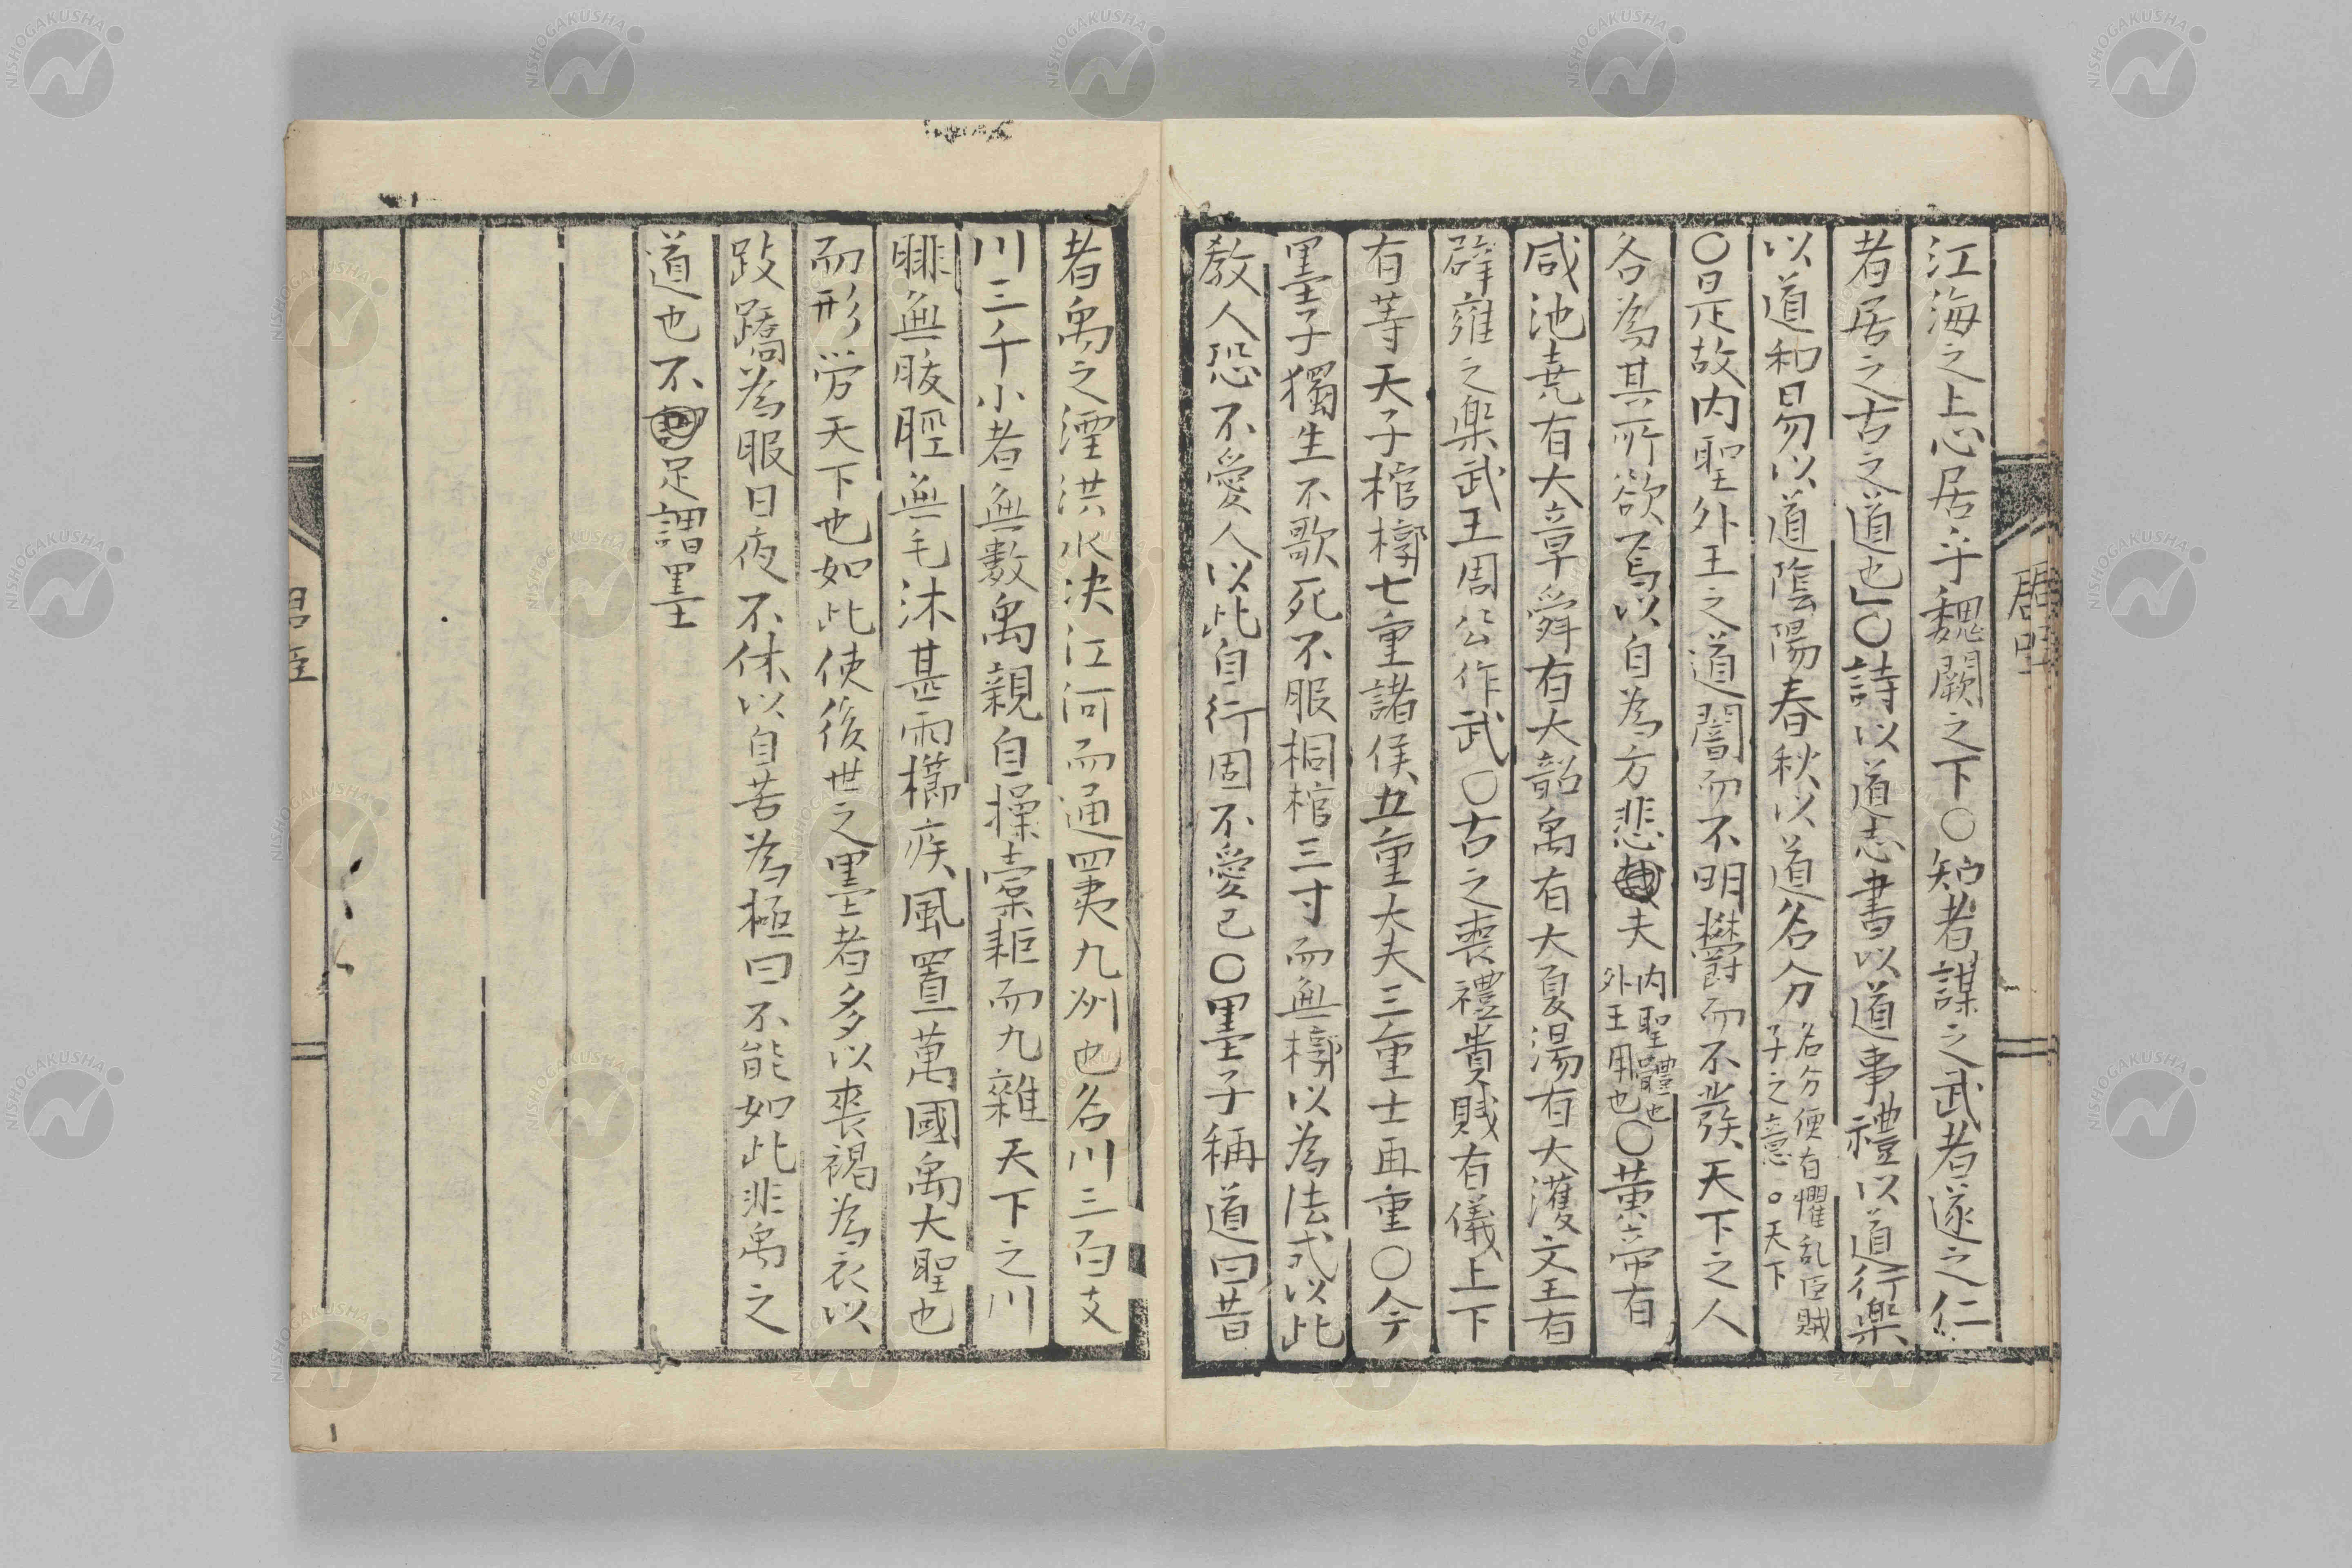 江海之上心居乎魏闕之下○知者謀之武者遂之仁
者居之古之道也」○詩以道志書以道事禮以道行樂
以道和易以道陰陽春秋以道名分名分便有懼乱臣賊子之意○天下
○是故内聖外王之道闇而不明欝而不發天下之人
各為其所欲焉以自為方悲夫内聖體也外王用也○黄帝有
咸池堯有大章舜有大韶禹有大夏湯有大濩文王有
辟雍之樂武王周公作武○古之喪禮貴賤有儀上下
有等天子棺槨七重諸侯五重大夫三重士再重○今
墨子獨生不歌死不服桐棺三寸而無槨以為法式以此
教人恐不愛人以此自行固不愛己○墨子稱道曰昔
者禹之湮洪水决江河而通四夷九州也名川三百支
川三千小者無數禹親自操橐耟而九雜天下之川
腓無胈脛無毛沐甚雨櫛疾風置萬國禹大聖也
而形労天下也如此使後世之墨者多以喪褐為衣以
跂蹻為服日夜不休以自苦為極曰不能如此非禹之
道也不足謂墨